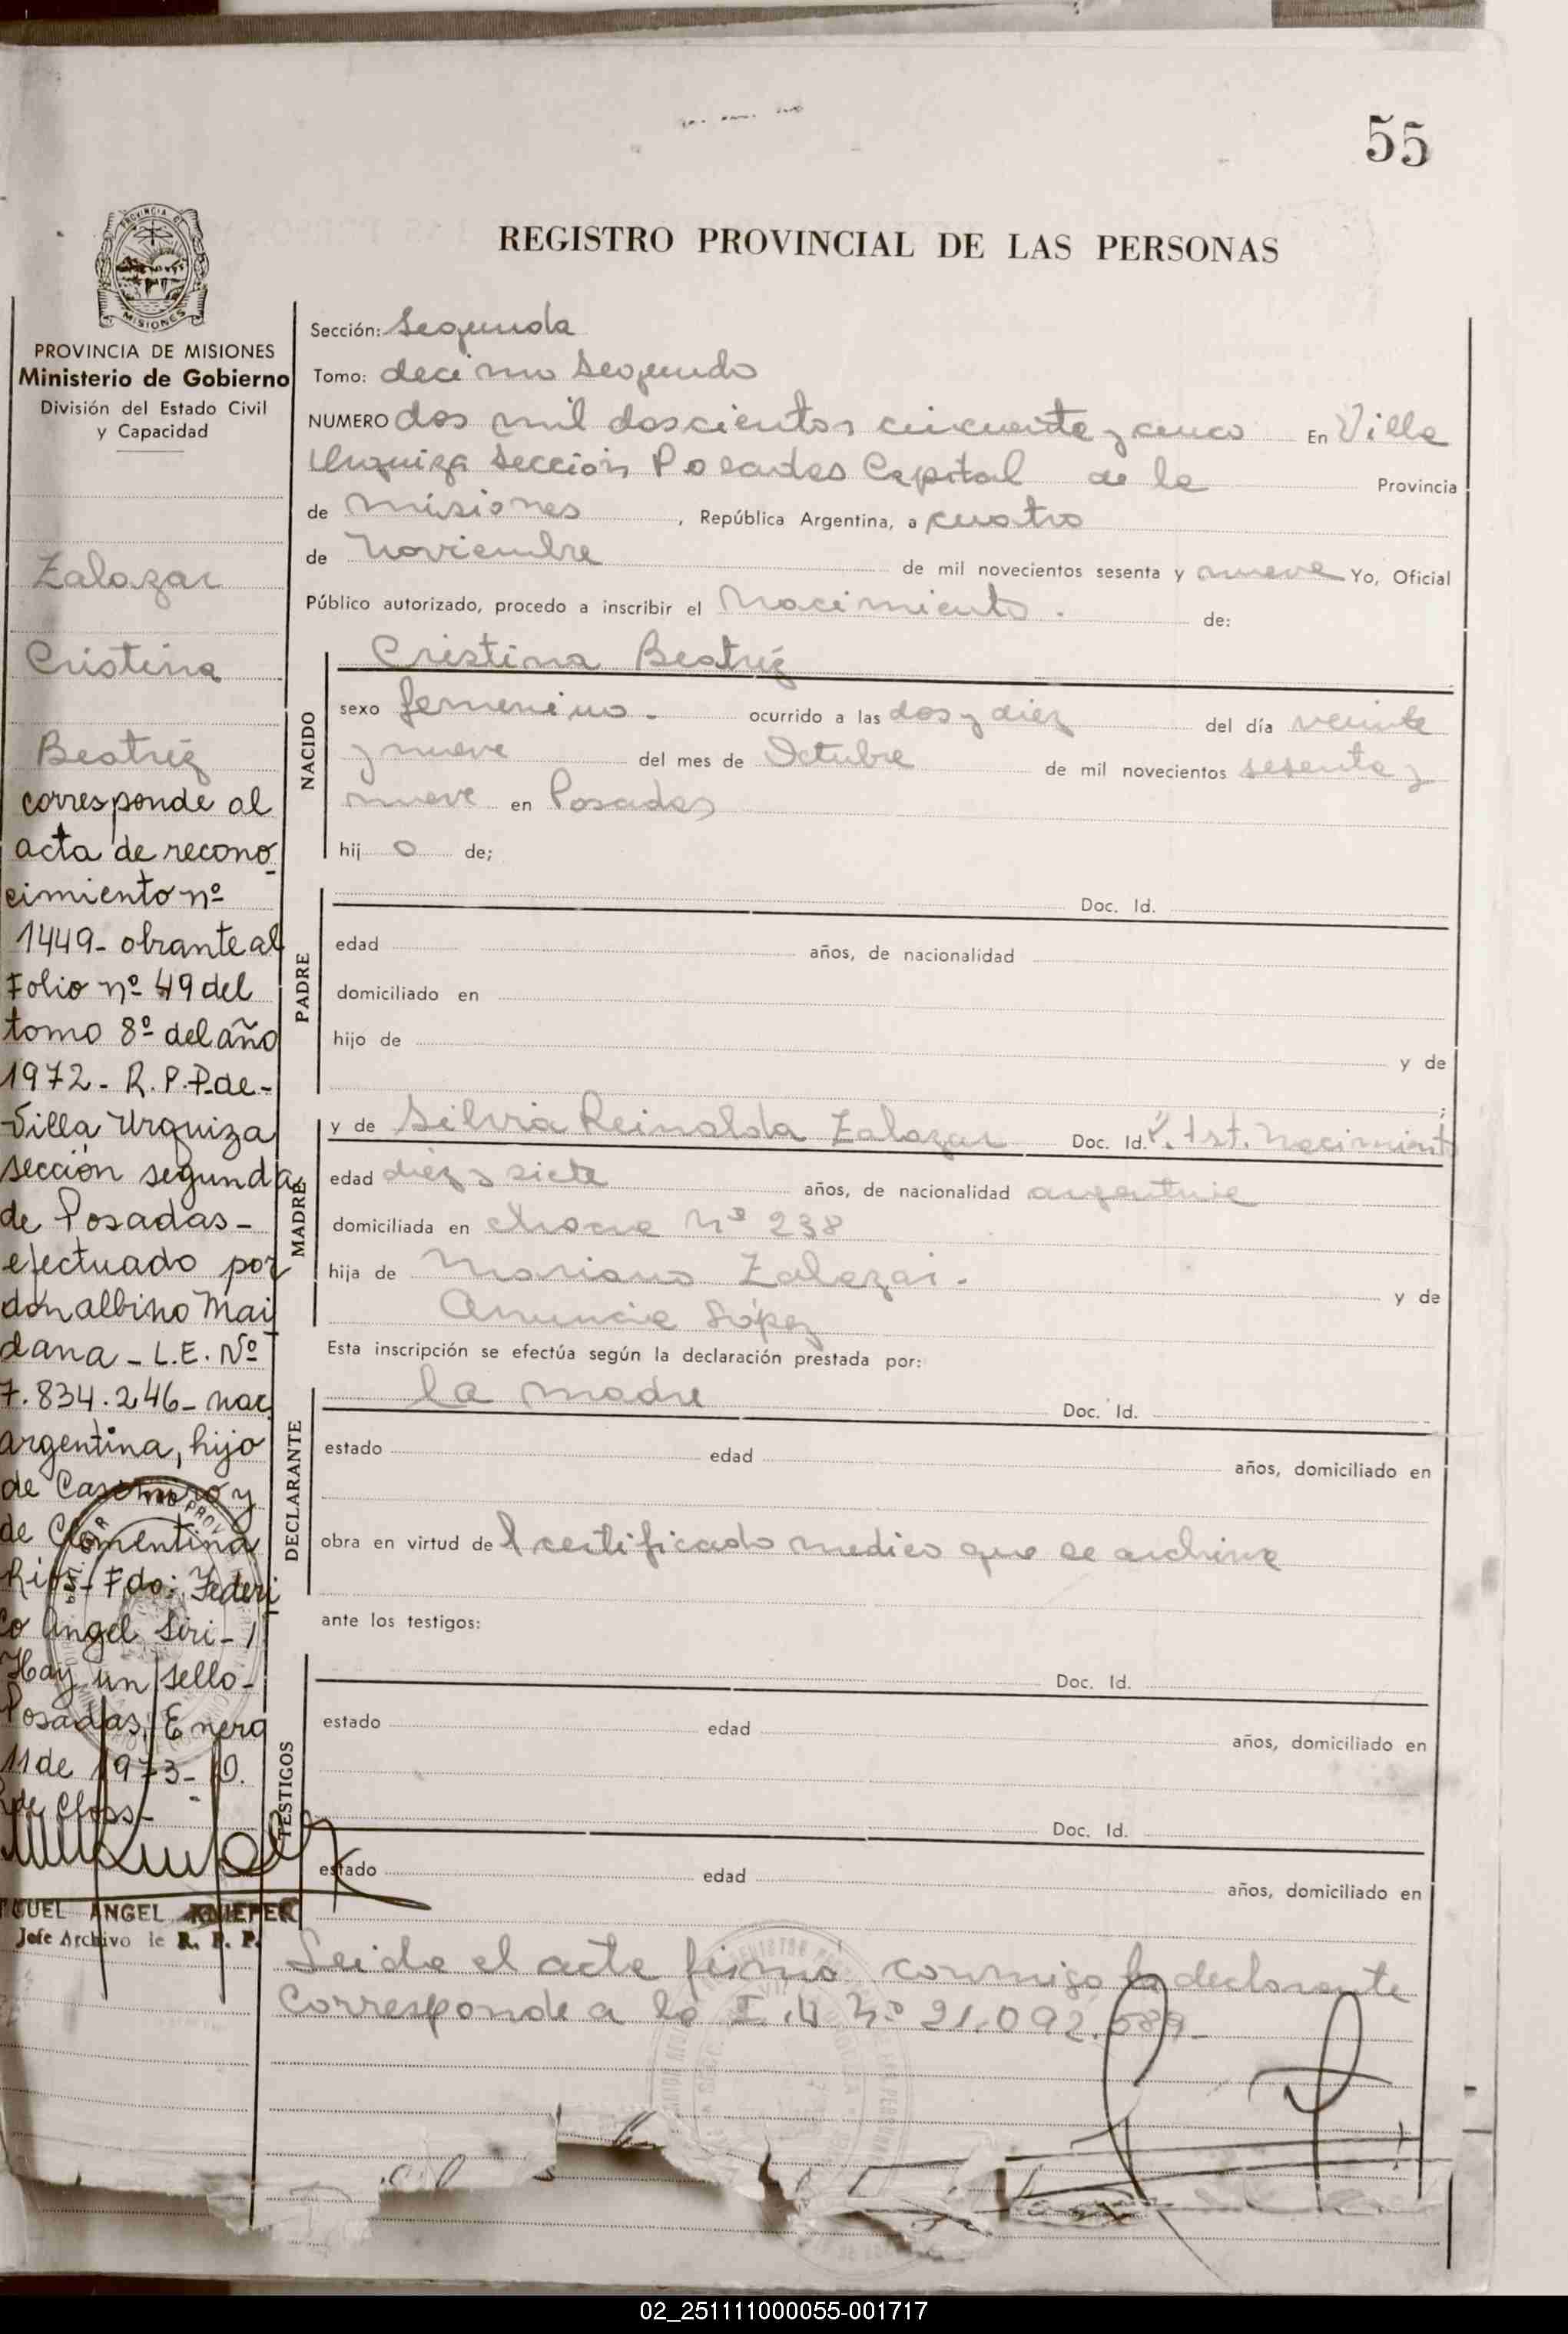 55
REGISTRO PROVINCIAL DE LAS PERSONAS
PROVINCIA DE
MISIONES
PROVINCIA DE MISIONES
Ministerio de Gobierno
División del Estado Civil
y Capacidad
Zalazar
Cristina
Beatriz
corresponde al
acta de recono
cimiento nº
1449- obrante al
Folio nº 49 del
tomo 8º del año
1972- R.P.P. de-
Villa Urquiza
sección segunda
de Posadas-
efectuado por
don albino Mai
dana - L.E. Nº
7.834.246- nac
argentina, hijo
de Casimiro y
de Clementina
Rios- Fdo: Federi
co Angel Siri-
Hay un sello-
Posadas, Enero
11 de 1973- D.
de Closs-
GUEL ANGEL KNIEFER
Jefe Archivo de R. P. P.
Sección: Segunda
Tomo: decimo Segundo
NUMERO dos mil doscientos cincuenta y cinco En Villa
Urquiza Sección Posadas Capital de la Provincia
de Misiones, República Argentina, a cuatro
de Noviembre de mil novecientos sesenta y nueve Yo, Oficial
Público autorizado, procedo a inscribir el Nacimiento. de:
NACIDO
Cristina Beatriz
sexo femenino. ocurrido a las dos y diez del día veinte
y nueve del mes de Octubre de mil novecientos sesenta y
nueve en Posadas
hij o de;
PADRE
Doc. Id.
edad años, de nacionalidad
domiciliado en
hijo de y de
;
MADRE
y de Silvia Reinalda Zalazar Doc. Id. P. Ist. Nacimient
edad diez y siete años, de nacionalidad argentina
domiciliada en Nº 238
hija de Mariano Zalazar. y de
Anuncia López
Esta inscripción se efectúa según la declaración prestada por:
DECLARANTE
la madre Doc. Id.
estado edad años, domiciliado en
obra en virtud del certificado medico que se archiva
ante los testigos:
TESTIGOS
Doc. Id.
estado edad años, domiciliado en
Doc. Id.
estado edad años, domiciliado en
Leida el acta firmó conmigo la declarante
Corresponde a la I.U Nº 21.092.689-
02_251111000055-001717